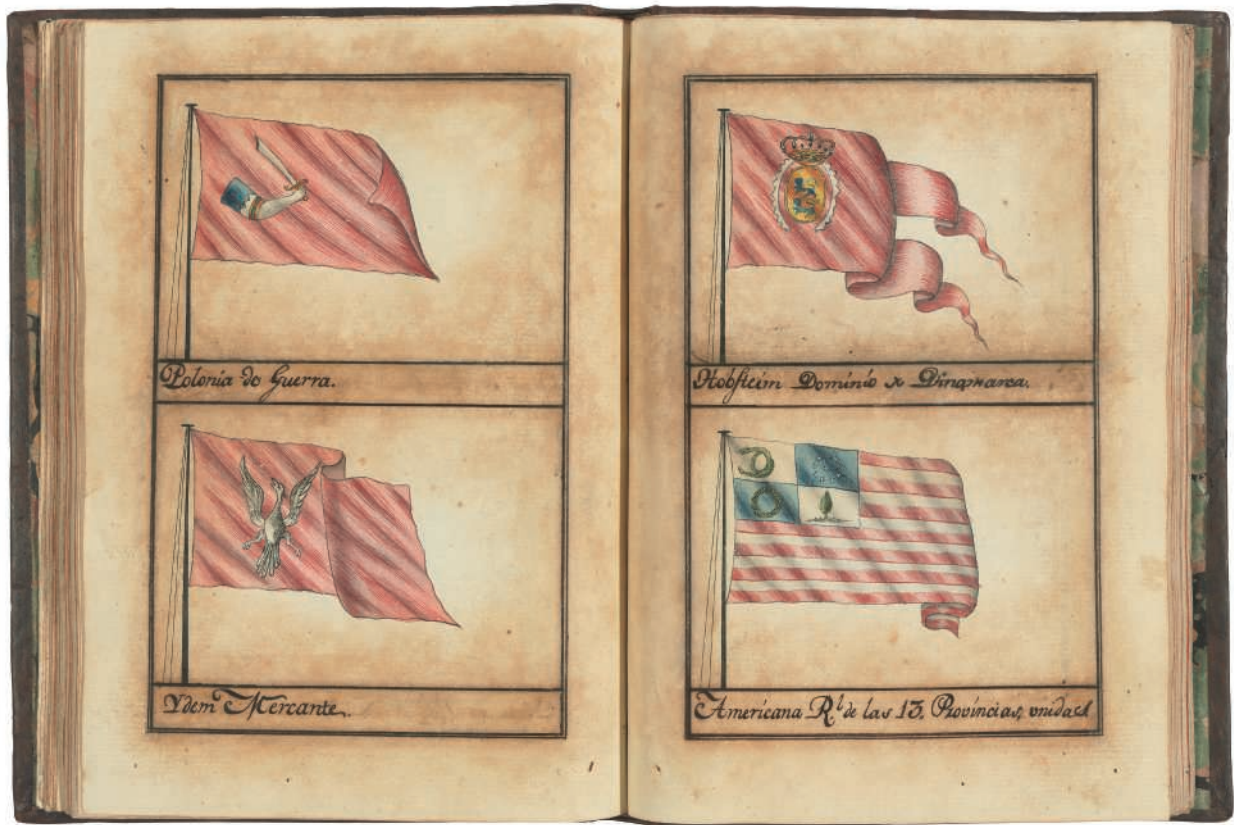 Polonia de Guerra.
Ydem Mercante.
Holsteim Dominio de Dinamarca.
Americana R.l de las 13. Provincias, unidas